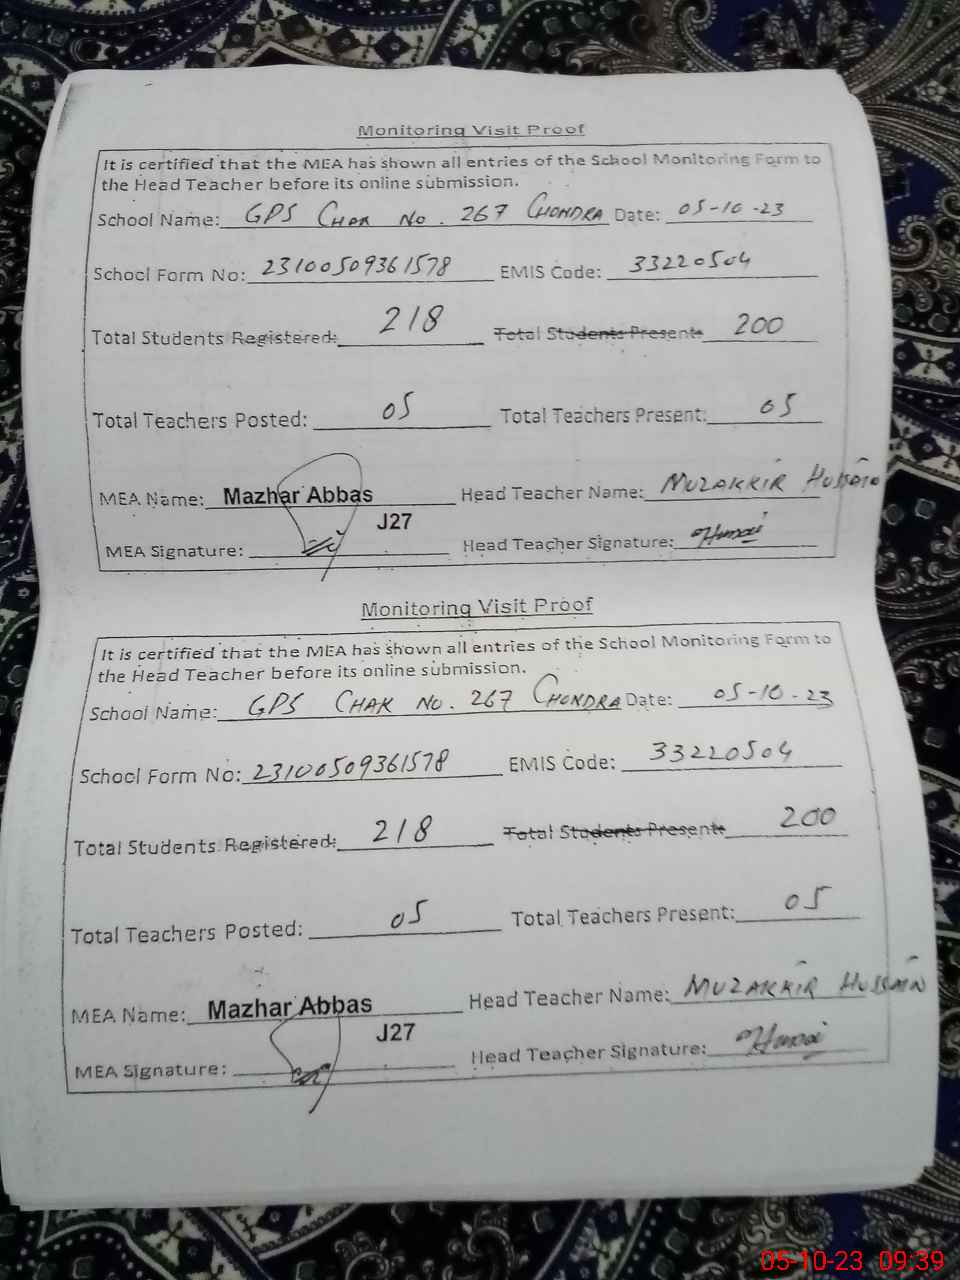 Monitoring Visit Proof
It is certified that the MEA has shown all entries of the School Monitoring Form to
the Head Teacher before its online submission.
School Name: GPS CHAK NO. 267 CHONDRA Date: 05-10-23
School Form No: 23100509361578 EMIS Code: 33220504
Total Students Registered: 218 Total Students Present: 200
Total Teachers Posted: 05 Total Teachers Present: 05
MEA Name: Mazhar Abbas Head Teacher Name: MUZAKKIR HUSSAIN
J27
MEA Signature: Head Teacher Signature:
Monitoring Visit Proof
It is certified that the MEA has shown all entries of the School Monitoring Form to
the Head Teacher before its online submission.
School Name: GPS CHAK NO. 267 CHONDRA Date: 05-10-23
School Form No: 23100509361578 EMIS Code: 33220504
Total Students Registered: 218 Total Students Present: 200
Total Teachers Posted: 05 Total Teachers Present: 05
MEA Name: Mazhar Abbas Head Teacher Name: MUZAKKIR HUSSAIN
J27
MEA Signature: Head Teacher Signature:
05-10-23 09:39